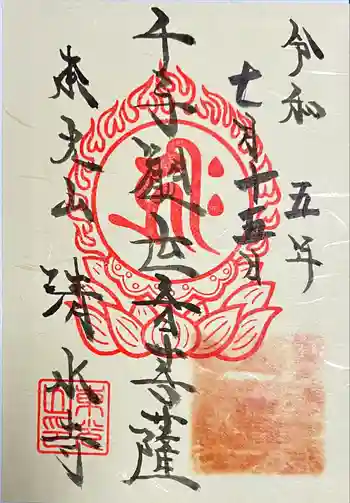 令和五年
七月十五日
千手観世音菩薩
山 清水寺